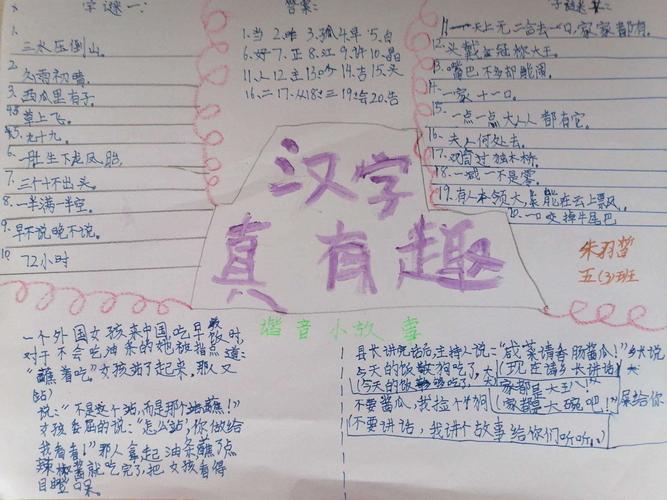 字谜一:
1.
三水压倒山。
2.
久雨初晴。
3.西瓜里有子。
4.草上飞。
5.九十九。
6.一胜生下龙凤胎。
7.三个十不出头。
8.一半满一半空。
9.早不说晚不说。
10.
72小时
答案:
1.当 2.昨 3.孤 4.早 5.白
6.好 7.正 8.江 9.许 10.晶
11.人 12.主 13.吟 14.吉 15.头
16.二 17.从 18.三 19.会 20.告
11.天上无二合去一口,家家都有。
12.头戴三冠称大王。
13.嘴巴不多却能闹。
14.一家十一口。
15.一点一点大人人都有它。
16.夫人何处去。
17.双宿过独木桥。
18.一减一不是零。
19.有人本领大,竟能在云上飘。
20.一口咬掉牛尾巴
汉字
真有趣
朱羽
五(3)班
谐音小故事
一个外国女孩来中国吃早饭时,
对于不会吃油条的她被指点道:
“蘸着吃”女孩站了起来。那人又
说:“不是这个站,而是那个站蘸!”
女孩委屈的说:“怎么站,你做给
我看看!”那人拿起油条蘸了点
辣椒酱就吃完了,把女孩看得
目瞪口呆。
县长讲完话后,主持人说:“咸菜请香肠酱瓜!”乡长说:
今天的饭狗吃了,大(现在请乡长讲话)
(今天的饭够吃了!,大家都是大王八!
不要酱瓜,我捡个狗(家都是大碗吧!)屎给你
(不要讲话,我讲个故事给你们听听。)